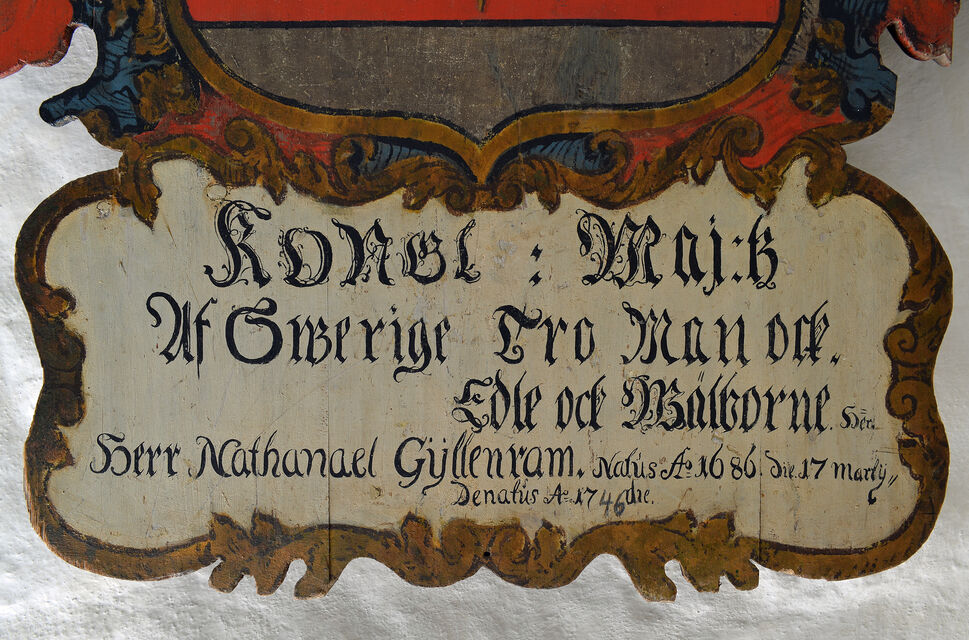 KONGL : Maj:tz
Af Swerige Tro Man ock.
Edle ock Wälborne. Her̄.
Herr Nathanael Gÿllenram. Natus A° 1686. die. 17 martÿ,,
Denatus A° 1746 die.